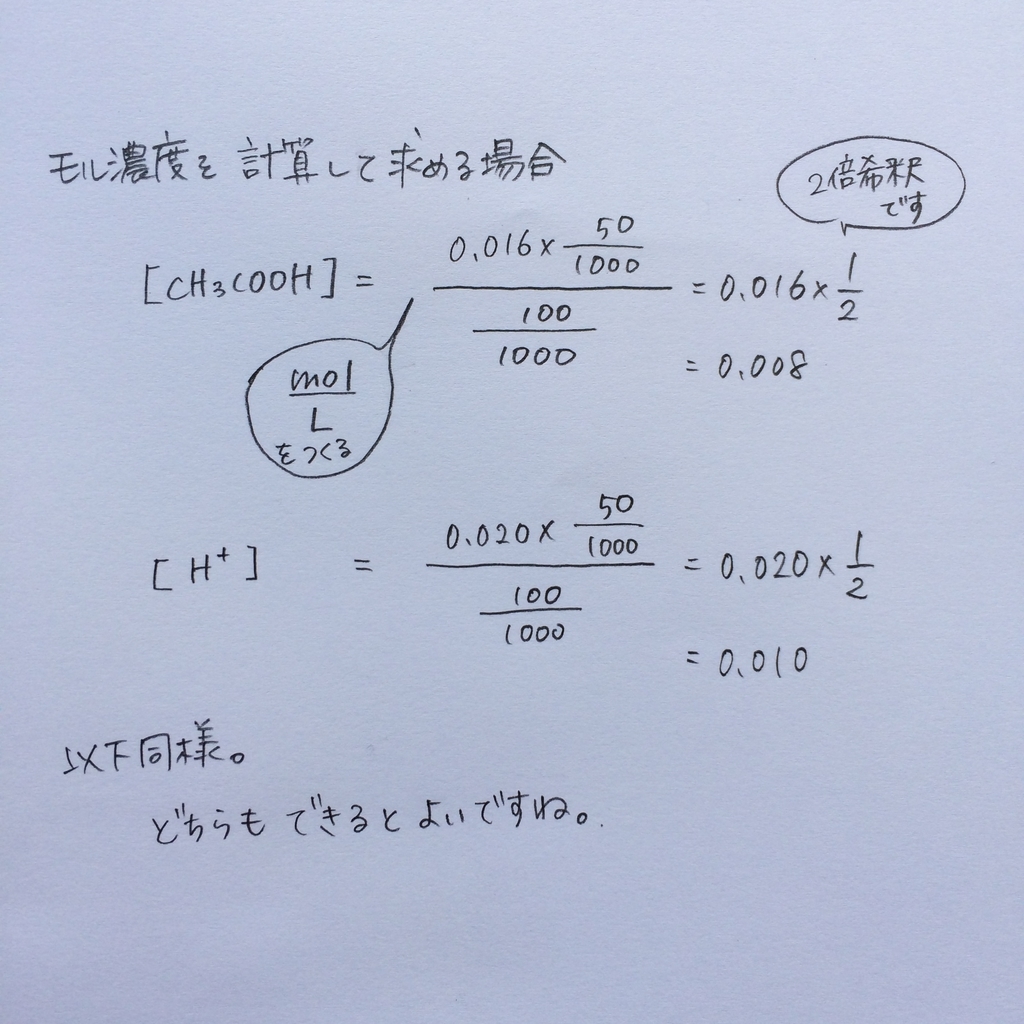 モル濃度を計算して求める場合
2倍希釈
です
[CH₃COOH] = (0.016 × 50/1000) / (100/1000) = 0.016 × 1/2
= 0.008
mol/L
をつくる
[H⁺] = (0.020 × 50/1000) / (100/1000) = 0.020 × 1/2
= 0.010
以下同様。
どちらもできるとよいですね。